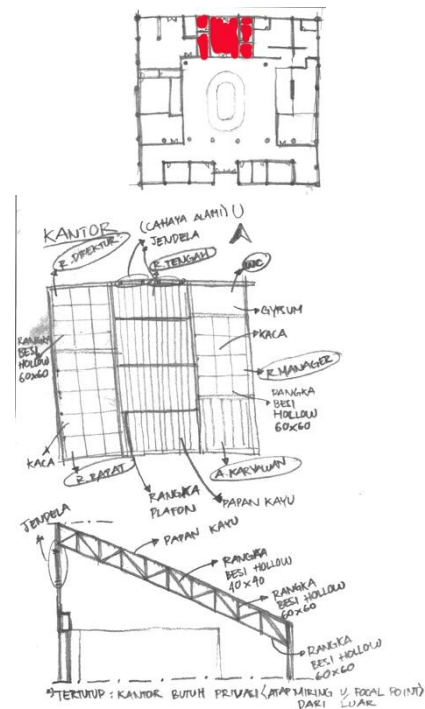 KANTOR
(CAHAYA ALAMI) U
JENDELA
R. DIREKTUR
R. TENGAH
WC
GYPSUM
KACA
RANGKA
BESI
HOLLOW
60x60
R. MANAGER
RANGKA
BESI
HOLLOW
60x60
KACA
R. RAPAT
A. KARYAWAN
RANGKA
PLAFON
PAPAN KAYU
JENDELA
PAPAN KAYU
RANGKA
BESI HOLLOW
40x40
RANGKA
BESI HOLLOW
60x60
RANGKA
BESI HOLLOW
60x60
*) TERTUTUP : KANTOR BUTUH PRIVASI (ATAP MIRING U/ FOCAL POINT)
DARI LUAR